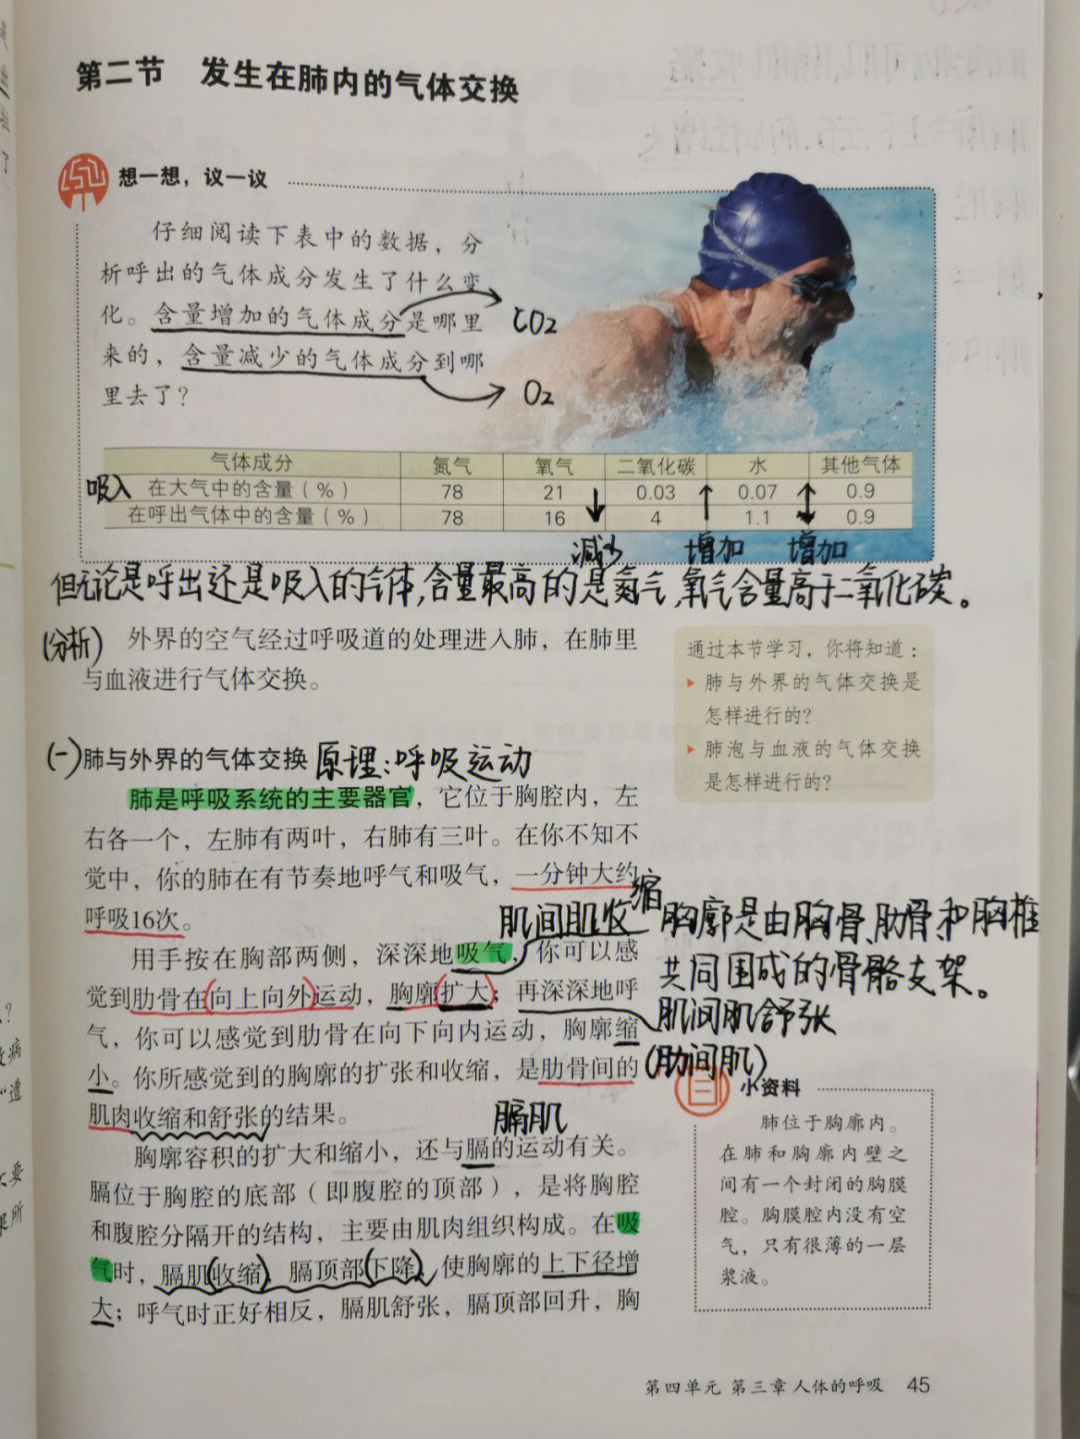 第二节 发生在肺内的气体交换
想一想，议一议
仔细阅读下表中的数据，分
析呼出的气体成分发生了什么变
化。含量增加的气体成分是哪里
来的，含量减少的气体成分到哪
里去了？
CO2
O2
气体成分 氮气 氧气 二氧化碳 水 其他气体
吸入 在大气中的含量（%） 78 21 0.03 0.07 0.9
在呼出气体中的含量（%） 78 16 4 1.1 0.9
减少 增加 增加
但无论是呼出还是吸入的气体,含量最高的是氮气,氧气含量高于二氧化碳。
(分析) 外界的空气经过呼吸道的处理进入肺，在肺里
与血液进行气体交换。
通过本节学习，你将知道：
肺与外界的气体交换是
怎样进行的？
肺泡与血液的气体交换
是怎样进行的？
(一)肺与外界的气体交换 原理:呼吸运动
肺是呼吸系统的主要器官，它位于胸腔内，左
右各一个，左肺有两叶，右肺有三叶。在你不知不
觉中，你的肺在有节奏地呼气和吸气，一分钟大约
呼吸16次。
肌间肌收缩
用手按在胸部两侧，深深地吸气，你可以感
觉到肋骨在向上向外运动，胸廓扩大；再深深地呼
气，你可以感觉到肋骨在向下向内运动，胸廓缩
小。你所感觉到的胸廓的扩张和收缩，是肋骨间的
肌肉收缩和舒张的结果。
胸廓是由胸骨、肋骨和胸椎
共同围成的骨骼支架。
肌间肌舒张
(肋间肌)
膈肌
胸廓容积的扩大和缩小，还与膈的运动有关。
膈位于胸腔的底部（即腹腔的顶部），是将胸腔
和腹腔分隔开的结构，主要由肌肉组织构成。在吸
气时，膈肌收缩，膈顶部下降，使胸廓的上下径增
大；呼气时正好相反，膈肌舒张，膈顶部回升，胸
小资料
肺位于胸廓内。
在肺和胸廓内壁之
间有一个封闭的胸膜
腔。胸膜腔内没有空
气，只有很薄的一层
浆液。
第四单元 第三章 人体的呼吸 45